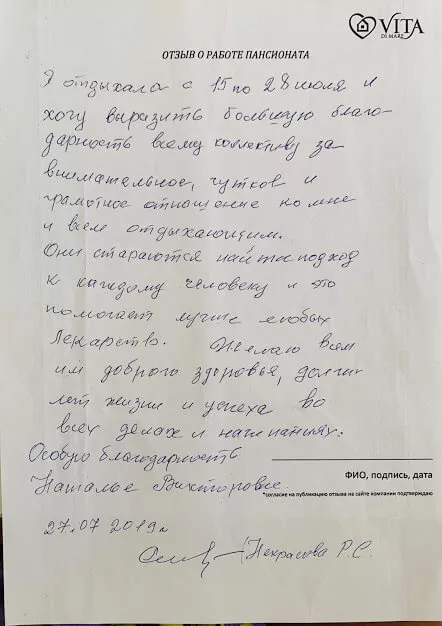 VITA
DI MARE
ОТЗЫВ О РАБОТЕ ПАНСИОНАТА
Я отдыхала с 15 по 28 июля и
хочу выразить большую благо-
дарность всему коллективу за
внимательное, чуткое и
грамотное отношение ко мне
и всем отдыхающим.
Они стараются найти подход
к каждому человеку и это
помогает лучше любых
лекарств. Желаю Вам
им доброго здоровья, долгих
лет жизни и успеха во
всех делах и начинаниях.
Особую благодарность
Наталье Викторовне.
ФИО, подпись, дата
*согласие на публикацию отзыва на сайте компании подтверждаю
27.07 2019г
Некрасова Р.С.